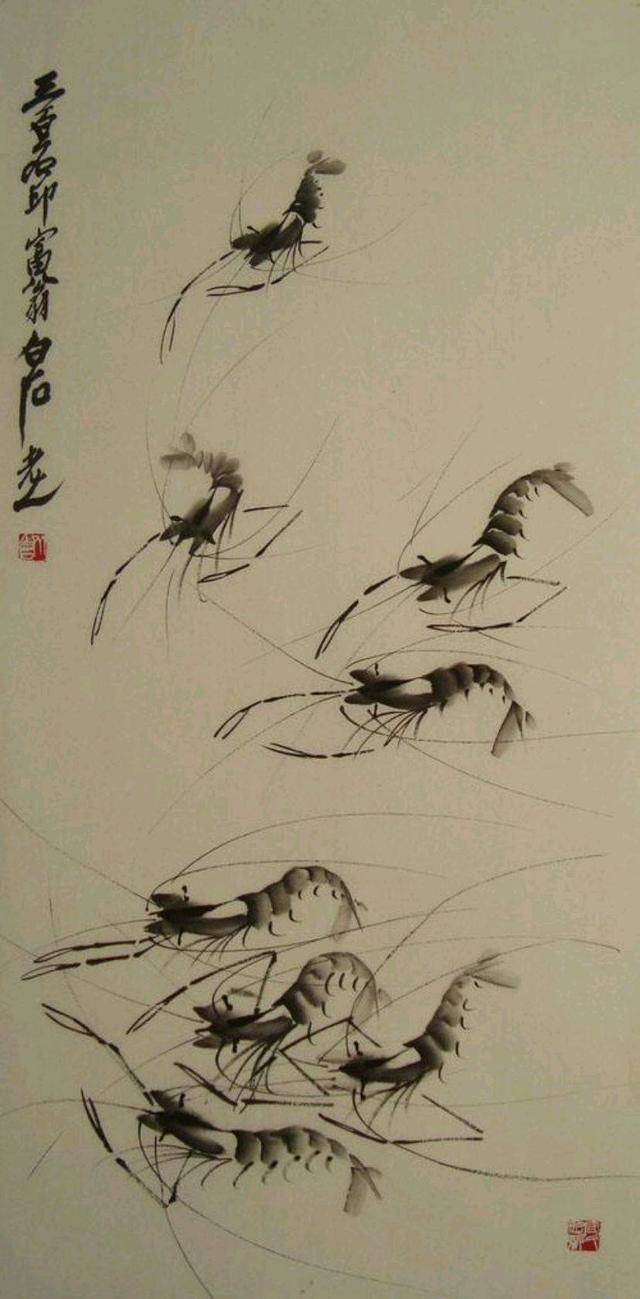 三百石印富翁白石老人